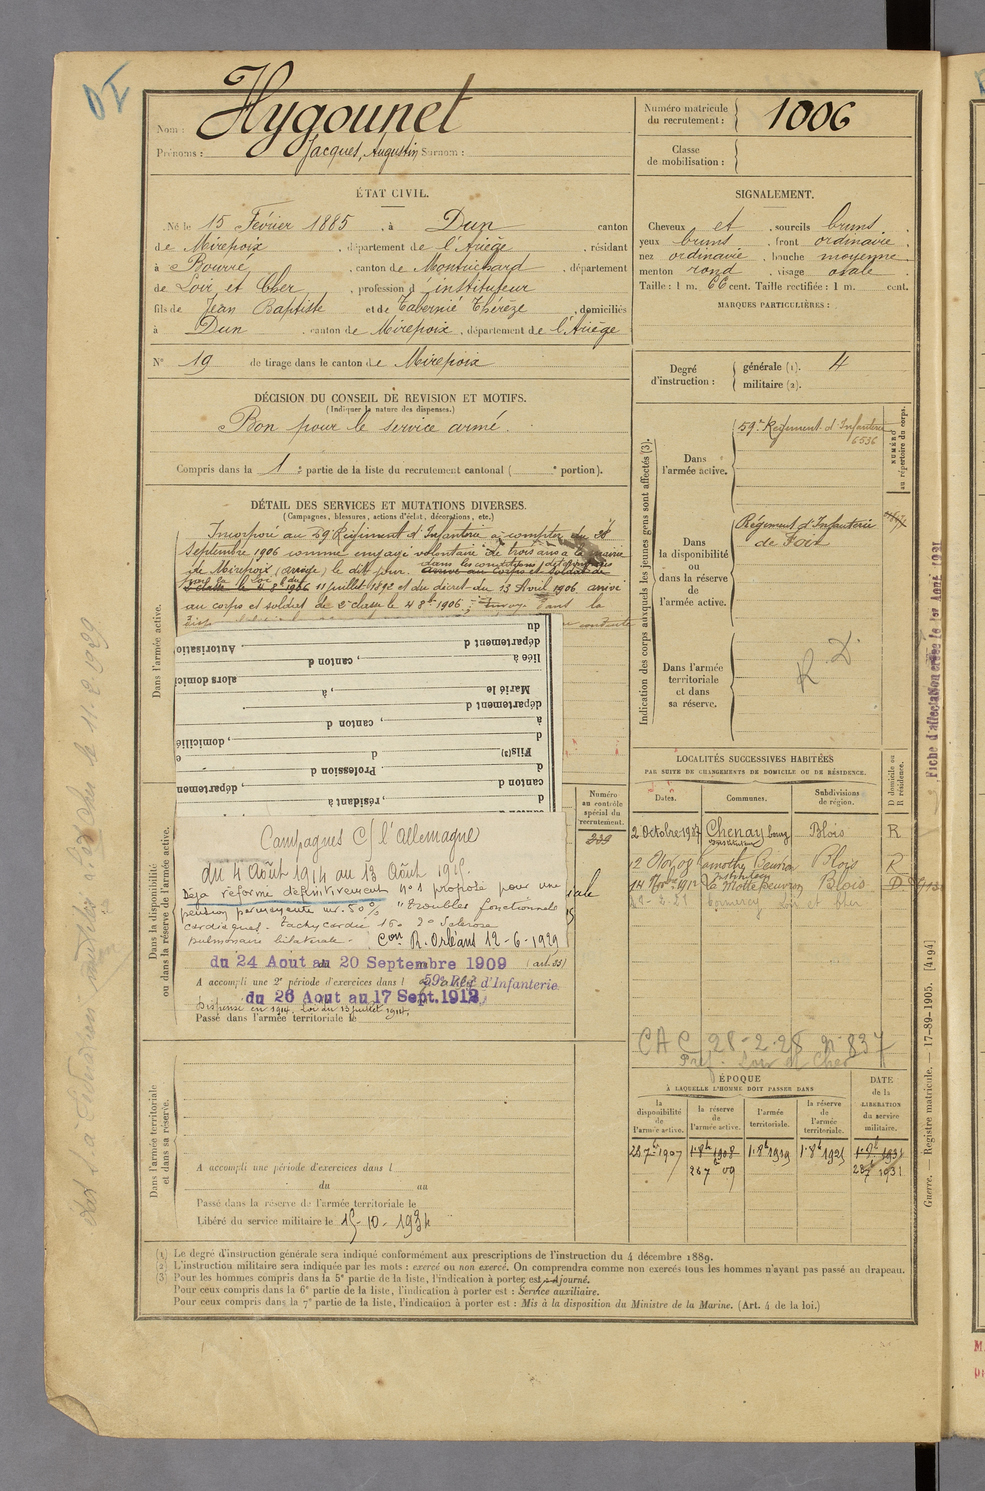 Nom : Hygounet
Prénoms : Jacques, Augustin Surnom :
Numéro matricule du recrutement : 1006
Classe de mobilisation :
ÉTAT CIVIL.
Né le 15 Février 1885, à Dun canton
de Mirepoix, département de l'Ariège, résidant
à Bourré, canton de Montrichard, département
de Loir et Cher, profession d'instituteur
fils de Jean Baptiste et de Tabernié Thérèze, domiciliés
à Dun, canton de Mirepoix, département de l'Ariège
N° 19 de tirage dans le canton de Mirepoix
SIGNALEMENT.
Cheveux et, sourcils bruns.
yeux bruns, front ordinaire.
nez ordinaire, bouche moyenne
menton rond, visage ovale
Taille : 1 m. 66 cent. Taille rectifiée : 1 m. cent.
MARQUES PARTICULIÈRES :
Degré d'instruction : générale (1). 4
militaire (2).
DÉCISION DU CONSEIL DE REVISION ET MOTIFS.
(Indiquer la nature des dispenses.)
Bon pour le service armé.
Compris dans la 1e partie de la liste du recrutement cantonal ( e portion).
DÉTAIL DES SERVICES ET MUTATIONS DIVERSES.
(Campagnes, blessures, actions d'éclat, décorations, etc.)
Incorporé au 59 Régiment d'Infanterie à compter du
Septembre 1906 comme engagé volontaire de trois ans à la mairie
de Mirepoix (ariège) le dit jour. dans les conditions
arrivé au corps et soldat de
2e classe le 4 8bre 1906 11 juillet 1892 et du décret du 13 Avril 1906 arrivé
au corps et soldat de 2e classe le 4 8bre 1906 dans la
du
département d Autorisation
liée à
, canton d
alors domicilié
Marié le , à
département d
à , canton d
d , domicilié
Fils(3) d
d Profession d
canton d , département
d , résidant à
Campagnes C/ l'allemagne
du 4 Août 1914 au 13 Août 1915.
Déja réformé définitivement n° 1 proposé pour une
pension permanente inv. 50 % "Troubles fonctionnels
cardiaques. Tachycardie 160 2° Sclérose
pulmonaire bilatérale. Con R. Orléans 12-6-1929
du 24 Aout au 20 Septembre 1909 (art. 55)
A accompli une 2e période d'exercices dans l 59e Régt d'Infanterie
du 26 Aout au 17 Sept. 1912
Dispensé en 1914, Loi du 13 juillet 1914
Passé dans l'armée territoriale le
Numéro au contrôle spécial du recrutement.
239
Dans l'armée active.
Dans la disponibilité ou dans la réserve de l'armée active.
Dans l'armée territoriale et dans sa réserve.
A accompli une période d'exercices dans l
du au
Passé dans la réserve de l'armée territoriale le
Libéré du service militaire le 15-10-1934
Indication des corps auxquels les jeunes gens sont affectés (3).
Dans l'armée active.
59e Régiment d'Infanterie
6536
NUMÉRO au répertoire du corps.
Dans la disponibilité ou dans la réserve de l'armée active.
Régiment d'Infanterie
de Foix
Dans l'armée territoriale et dans sa réserve.
R D
LOCALITÉS SUCCESSIVES HABITÉES
PAR SUITE DE CHANGEMENTS DE DOMICILE OU DE RÉSIDENCE.
Dates. Communes. Subdivisions de région. D domicile ou R résidence.
2 Octobre 1907 Chenay bourg Blois R
12 Nov 09 Lamothe Beuvron Blois R
14 Nov 1912 La Motte Beuvron Blois D
CAC 28-2-28 n° 837
Pref. Loir et Cher
ÉPOQUE
À LAQUELLE L'HOMME DOIT PASSER DANS
DATE de la LIBÉRATION du service militaire.
la disponibilité de l'armée active.
la réserve de l'armée active.
l'armée territoriale.
la réserve de l'armée territoriale.
28 7bre 1907 1er 8bre 1908 1er 8bre 1919 1er 8bre 1925 1er 8bre 1931
28 7bre 09 28 7bre 1931
(1) Le degré d'instruction générale sera indiqué conformément aux prescriptions de l'instruction du 4 décembre 1889.
(2) L'instruction militaire sera indiquée par les mots : exercé ou non exercé. On comprendra comme non exercés tous les hommes n'ayant pas passé au drapeau.
(3) Pour les hommes compris dans la 5e partie de la liste, l'indication à porter est ajourné.
Pour ceux compris dans la 6e partie de la liste, l'indication à porter est : Service auxiliaire.
Pour ceux compris dans la 7e partie de la liste, l'indication à porter est : Mis à la disposition du Ministre de la Marine. (Art. 4 de la loi.)
Guerre. — Registre matricule. — 17-89-1905. [4194]
Fiche d'affectation créée le 1er Août 1921